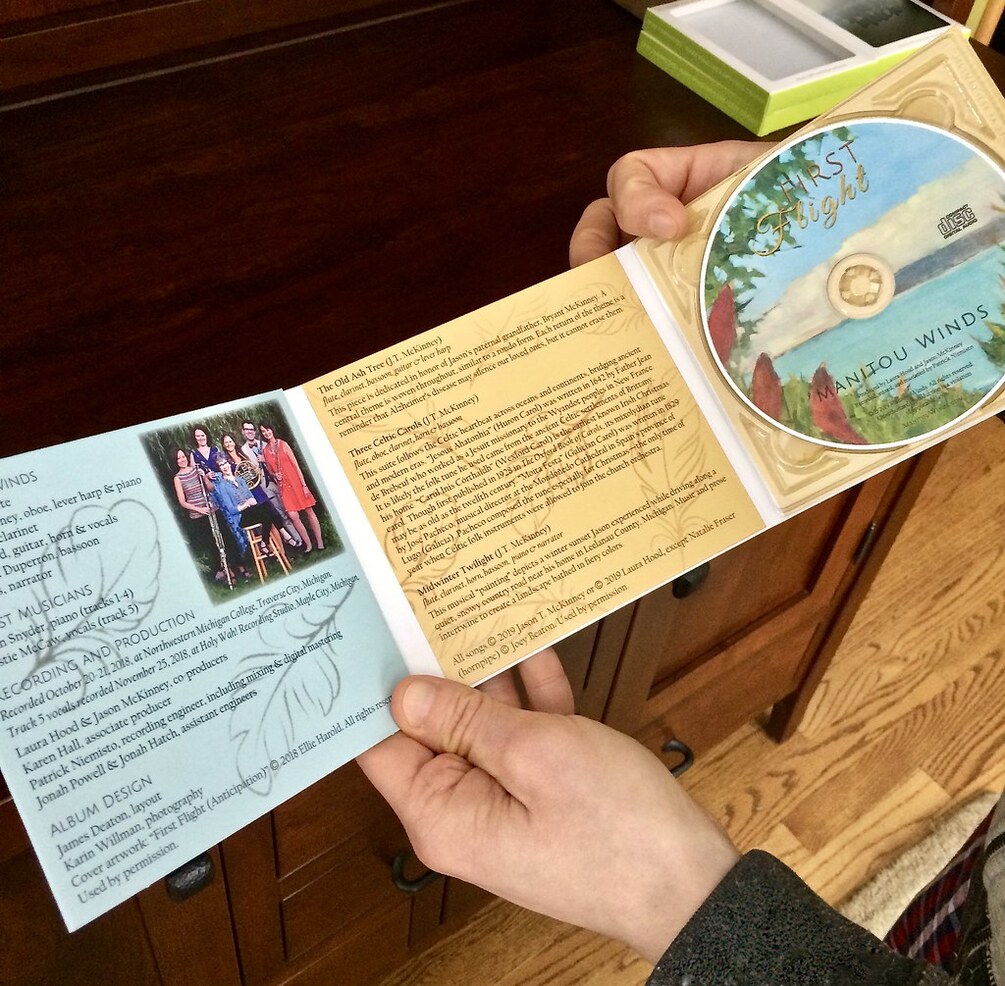 WINDS
ney, oboe, lever harp & piano
clarinet
d, guitar, horn & vocals
Duperron, bassoon
s, narrator
ST MUSICIANS
n Snyder, piano (tracks 1-4)
stie McCay, vocals (track 5)
RECORDING AND PRODUCTION
Recorded October 20-21, 2018, at Northwestern Michigan College, Traverse City, Michigan.
Track 5 vocals recorded November 25, 2018, at Holy Wah! Recording Studio, Maple City, Michigan.
Laura Hood & Jason McKinney, co-producers
Karen Hall, associate producer
Patrick Niemisto, recording engineer, including mixing & digital mastering
Jonah Powell & Jonah Hatch, assistant engineers
ALBUM DESIGN
James Deaton, layout
Karin Willman, photography
Cover artwork: "First Flight (Anticipation)" © 2018 Ellie Harold. All rights rese
Used by permission.
The Old Ash Tree (J.T. McKinney)
flute, clarinet, bassoon, guitar & lever harp
This piece is dedicated in honor of Jason's paternal grandfather, Bryant McKinney. A
central theme is woven throughout, similar to a rondo form. Each return of the theme is a
reminder that Alzheimer's disease may silence our loved ones, but it cannot erase them.
Three Celtic Carols (J.T. McKinney)
flute, oboe, clarinet, horn & bassoon
This suite follows the Celtic heartbeat across oceans and continents, bridging ancient
and modern eras. "Jesous Ahatonhia" (Huron Carol) was written in 1642 by Father Jean
de Brebeuf who worked as a Jesuit missionary to the Wyandot peoples in New France.
It is likely the folk tune he used came from the ancient Celtic settlements of Brittany,
his home. "Carúl Loch Garman" (Wexford Carol) is the earliest known Irish Christmas
carol. Though first published in 1928 in The Oxford Book of Carols, its mixolydian tune
may be as old as the twelfth century. "Moita Festa" (Galician Carol) was written in 1829
by José Pacheco, musical director at the Mondoñedo Cathedral in Spain's province of
Lugo (Galicia). Pacheco composed the tune especially for Christmas Day, the only time of
year when Celtic folk instruments were allowed to join the church orchestra.
Midwinter Twilight (J.T. McKinney)
flute, clarinet, horn, bassoon, piano & narrator
This musical "painting" depicts a winter sunset Jason experienced while driving along a
quiet, snowy country road near his home in Leelanau County, Michigan. Music and prose
intertwine to create a landscape bathed in fiery colors.
All songs © 2019 Jason T. McKinney or © 2019 Laura Hood, except Natalie Fraser
(hornpipe) © Joey Beaton. Used by permission.
FIRST
Flight
COMPACT
disc
DIGITAL AUDIO
MANITOU WINDS
by Laura Hood and Jason McKinney
by Patrick Niemisto
All rights reserved.